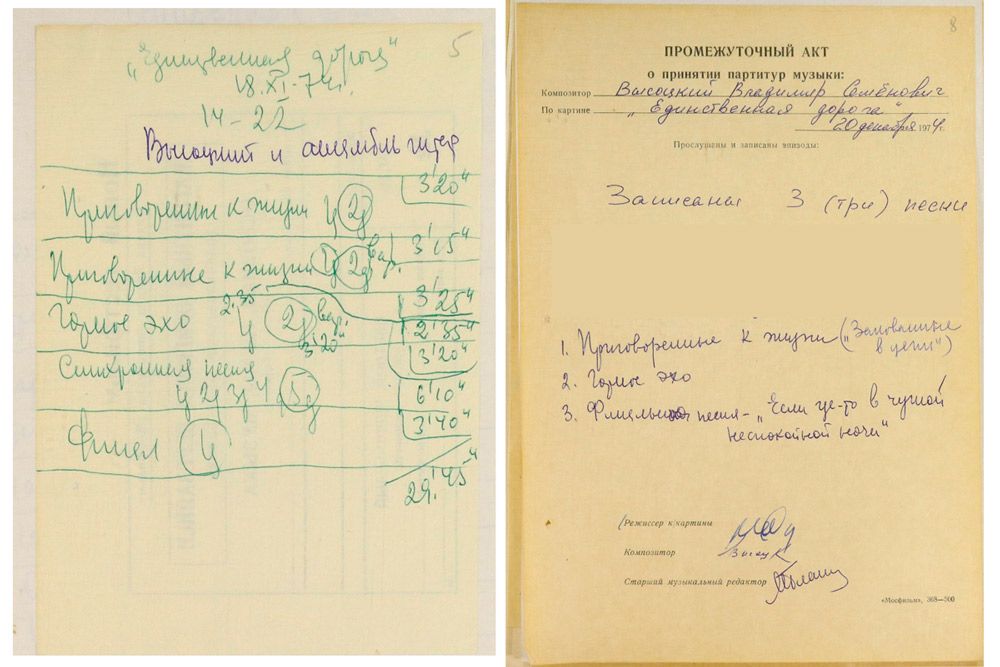 5
„Единственная дорога"
18.XI-74г.
14-22
Высоцкий и ансамбль гитар
3'20"
Приговоренные к жизни 2д
3'15"
Приговоренные к жизни 1д 2д вар.
3'25"
2.35
Горное эхо 2д вар.
2'35"
3'20"
3'20"
Синхронная песня
2д 3д 4 5д
6'10"
3'40"
Финал
29'.45"
8
ПРОМЕЖУТОЧНЫЙ АКТ
о принятии партитур музыки:
Композитор Высоцкий Владимир Семёнович
По картине „Единственная дорога"
20 декабря 1974 г.
Прослушаны и записаны эпизоды:
Записаны 3 (три) песни
1. Приговоренные к жизни („Закованные
в цепи")
2. Горное эхо
3. Финальная песня - „Если где-то в чужой
неспокойной ночи"
Режиссер картины
Композитор
Старший музыкальный редактор
«Мосфильм», 368—500